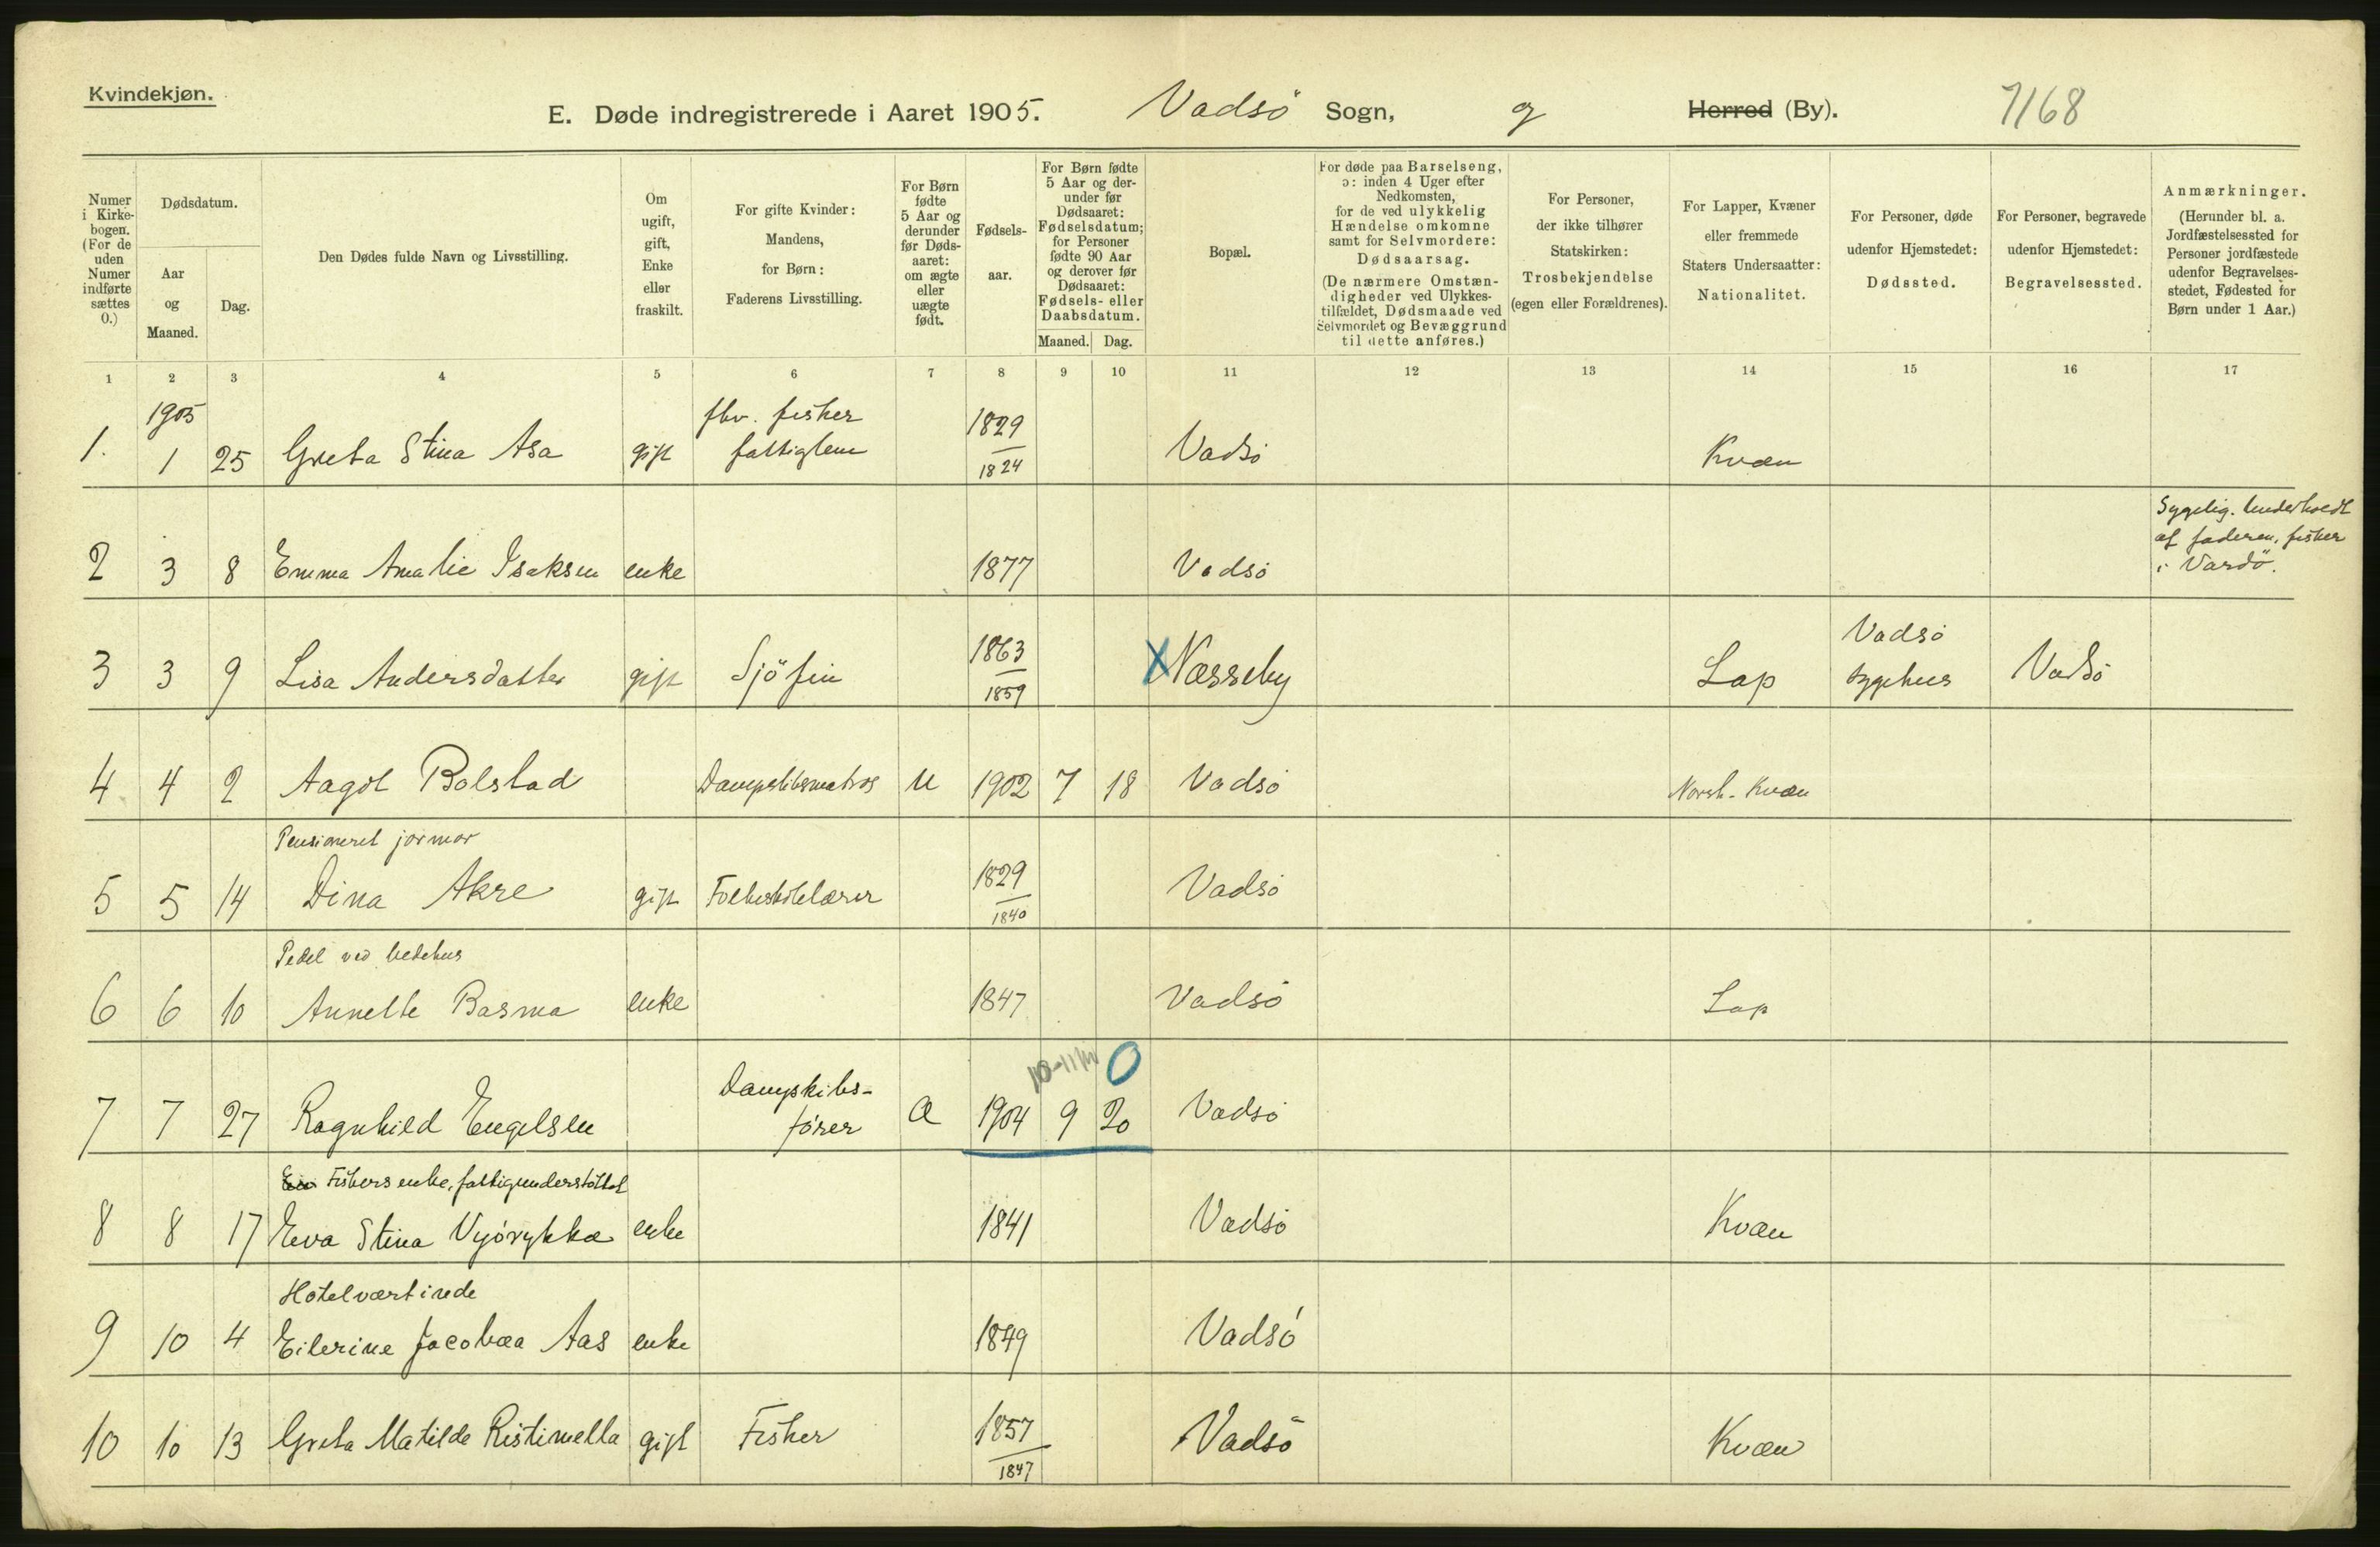 Kvindekjøn.
E. Døde indregistrerede i Aaret 1905. Vadsö Sogn, g Herred (By). 7168
Numer i Kirkebogen. (For de uden Numer indførte sættes 0.)
Dødsdatum.
Aar og Maaned.
Dag.
Den Dødes fulde Navn og Livsstilling.
Om ugift, gift, Enke eller fraskilt.
For gifte Kvinder: Mandens, for Børn: Faderens Livsstilling.
For Børn fødte 5 Aar og derunder før Dødsaaret: om ægte eller uægte født.
Fødselsaar.
For Børn fødte 5 Aar og derunder før Dødsaaret: Fødselsdatum; for Personer fødte 90 Aar og derover før Dødsaaret: Fødsels- eller Daabsdatum.
Maaned. Dag.
Bopæl.
For døde paa Barselseng, ɔ: inden 4 Uger efter Nedkomsten, for de ved ulykkelig Hændelse omkomne samt for Selvmordere: Dødsaarsag.
(De nærmere Omstændigheder ved Ulykkestilfældet, Dødsmaade ved Selvmordet og Bevæggrund til dette anføres.)
For Personer, der ikke tilhører Statskirken: Trosbekjendelse (egen eller Forældrenes).
For Lapper, Kvæner eller fremmede Staters Undersaatter: Nationalitet.
For Personer, døde udenfor Hjemstedet: Dødssted.
For Personer, begravede udenfor Hjemstedet: Begravelsessted.
Anmærkninger. (Herunder bl. a. Jordfæstelsessted for Personer jordfæstede udenfor Begravelsesstedet, Fødested for Børn under 1 Aar.)
1 2 3 4 5 6 7 8 9 10 11 12 13 14 15 16 17
1905 fhv. fisker 1829
1. 1 25 Greta Stina Asa gift fattiglem 1824 Vadsö Kvæn
Sygelig. Underholdt
af faderen, fisker
2 3 8 Emma Amalie Isaksen enke 1877 Vadsö i Vardö.
1863 Vadsö
3 3 9 Lisa Andersdatter gift Sjöfin 1859 X Næsseby Lap sygehus Vadsö
4 4 2 Aagot Bolstad Dampskibsmatros U 1902 7 18 Vadsö Norsk-Kvæn
Pensioneret jormor
1829
5 5 14 Dina Akre gift Folkeskolelærer 1840 Vadsö
Pedel ved bedehus
6 6 10 Annette Basma enke 1847 Vadsö Lap
10-11 0
Dampskibs-
7 7 27 Ragnhild Engelsen fører Æ 1904 9 20 Vadsö
Fiskers enke, fattigunderstöttet
8 8 17 Eeva Stina Vyörykkæ enke 1841 Vadsö Kvæn
Hotelværtinde
9 10 4 Eilerine Jacobæa Aas enke 1849 Vadsö
1857
10 10 13 Greta Matilde Ristimella gift Fisker 1847 Vadsö Kvæn